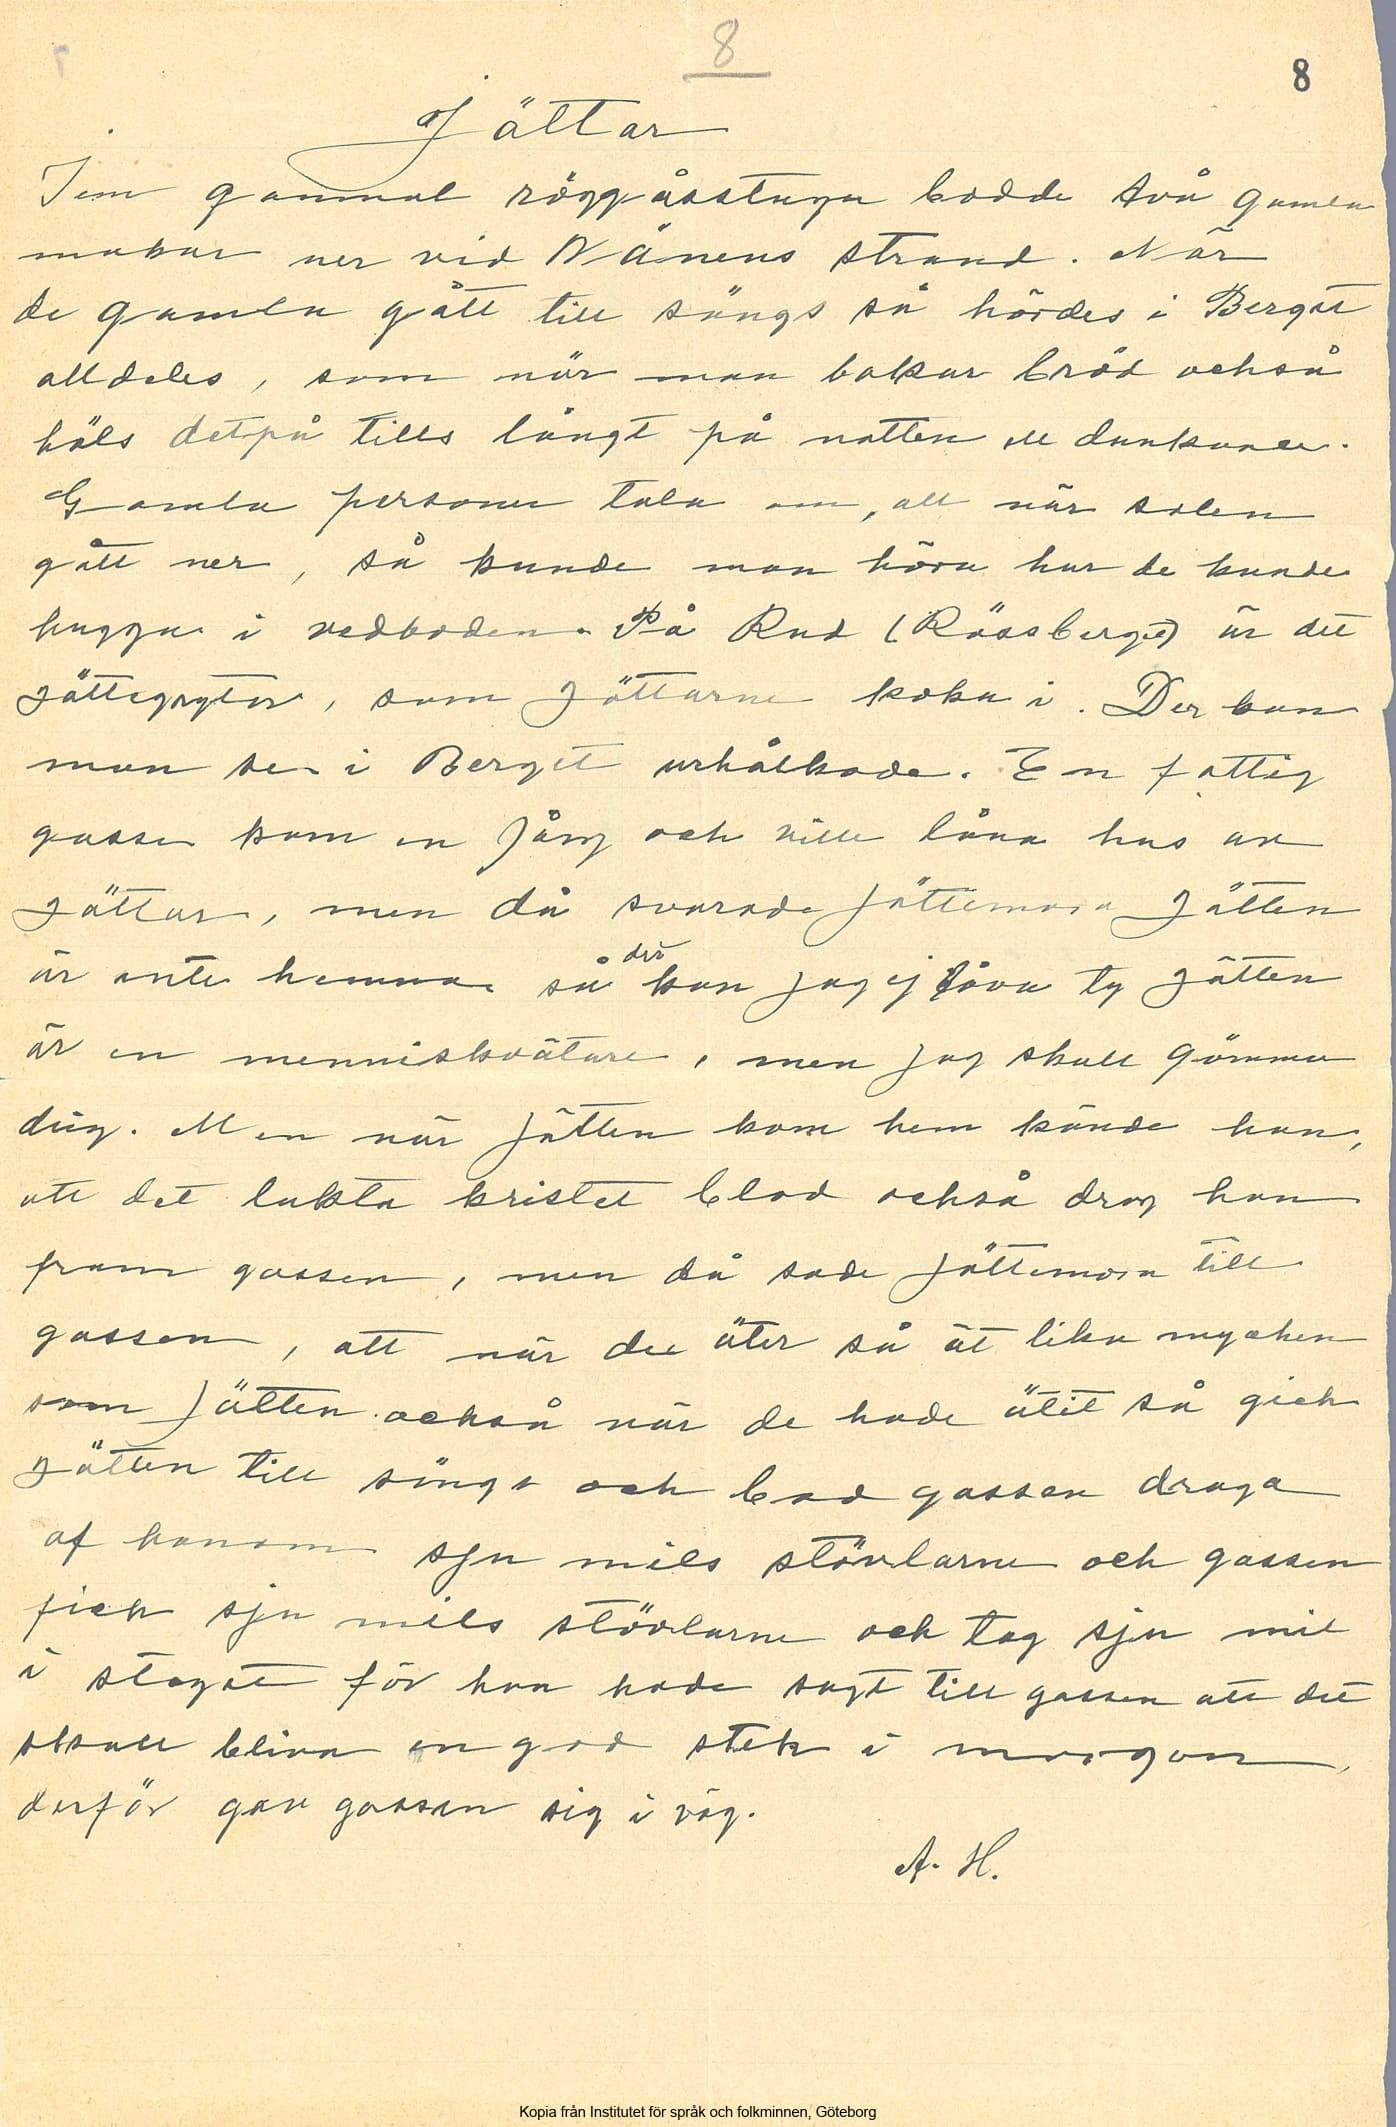 8
8
Jättar
I en gammal röggåsstuga bodde två gamla
makar ner vid Vänens strand. När
de gamla gått till sängs så hördes i Berget
alldeles, som när man bakar bröd också
höls det på tills långt på natten
Gamla personer tala om, att när solen
gått ner, så kunde man höra hur de kunde
hugga i vedboden. På Rud (Rössberget) är det
jättegrytor, som Jättarne koka i. Der kan
man se i Berget urhålkade. En fattig
gosse kom en gång och ville låna hus av
jättar, men då svarade jättemora Jätten
är inte hemma så det kan jag ej lova ty Jätten
är en menniskoätare, men jag skall gömma
dig. Men när Jätten kom hem kände han,
att det lukta kristet blod också drog han
fram gossen, men då sade jättemora till
gossen, att när du äter så ät lika mycken
som Jätten också när de hade ätit så gick
Jätten till sängs och bad gossen draga
af honom sju mils stövlarne och gossen
fick sju mils stövlarne och tog sju mil
i steget för han hade sagt till gossen att det
skall bliva en god stek i morgon,
derför gav gossen sig i väg.
A. H.
Kopia från Institutet för språk och folkminnen, Göteborg